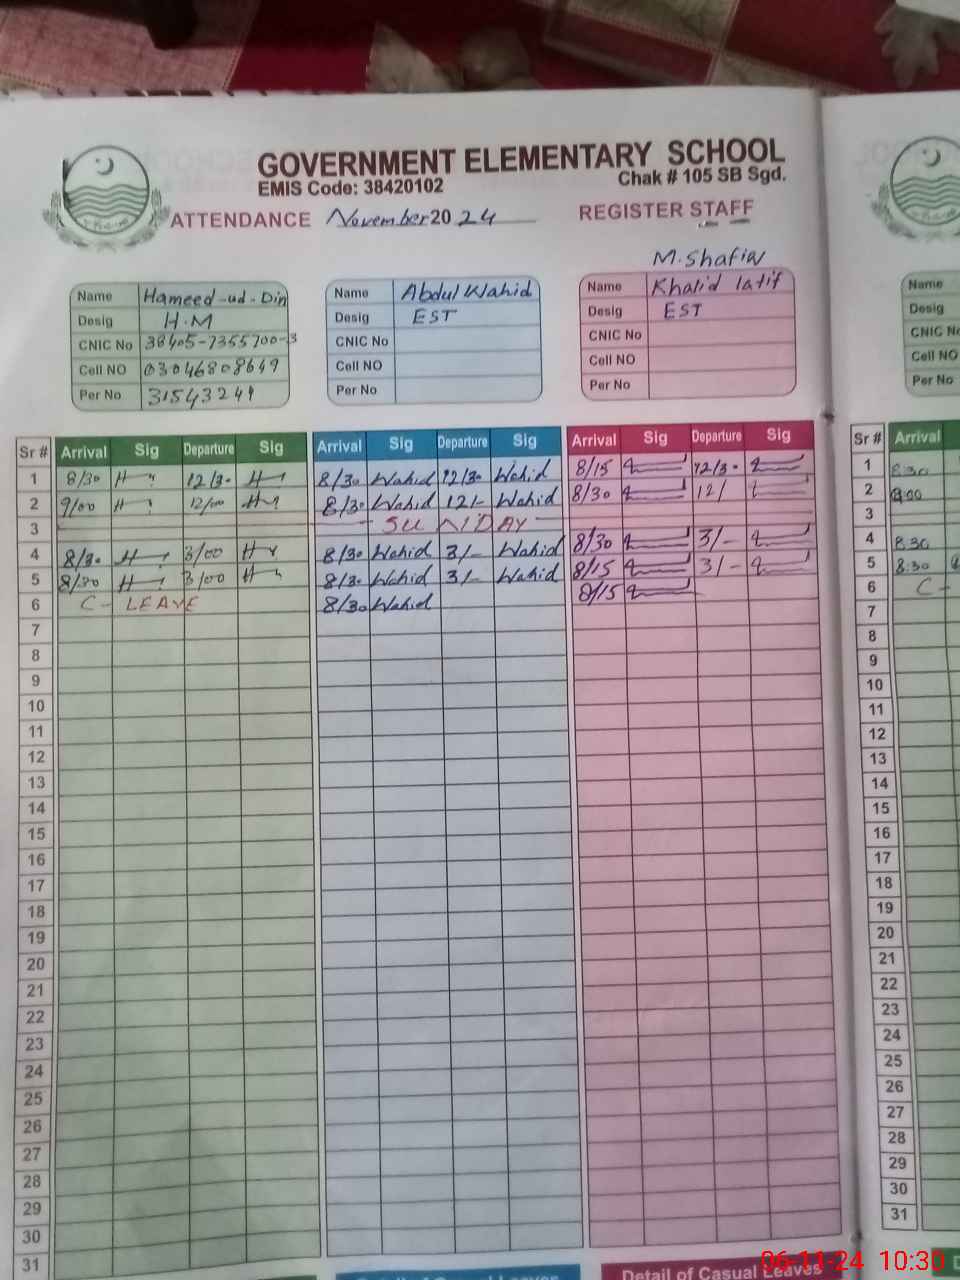 GOVERNMENT ELEMENTARY SCHOOL
EMIS Code: 38420102 Chak # 105 SB Sgd.
ATTENDANCE November 2024 REGISTER STAFF
M. Shafiq
Name Hameed-ud-Din Name Abdul Wahid Name Khalid latif Name
Desig H.M Desig EST Desig EST Desig
CNIC No 38405-7355700-3 CNIC No CNIC No CNIC No
Cell NO 03046808649 Cell NO Cell NO Cell NO
Per No 31543241 Per No Per No Per No
Sr # Arrival Sig Departure Sig Arrival Sig Departure Sig Arrival Sig Departure Sig Sr # Arrival
1 8/30 H 12/30 H 8/30 Wahid 12/30 Wahid 8/15 12/30 1 8:30
2 9/00 H 12/00 H 8/30 Wahid 12/- Wahid 8/30 12/ 2 9:00
3 SUNDAY 3
4 8/30 H 3/00 H 8/30 Wahid 3/- Wahid 8/30 3/- 4 8:30
5 8/30 H 3/00 H 8/30 Wahid 3/- Wahid 8/15 3/- 5 8:30
6 C- LEAVE 8/30 Wahid 8/15 6 C-
7 7
8 8
9 9
10 10
11 11
12 12
13 13
14 14
15 15
16 16
17 17
18 18
19 19
20 20
21 21
22 22
23 23
24 24
25 25
26 26
27 27
28 28
29 29
30 30
31 31
Detail of Casual Leaves Detail of Casual Leaves
06-11-24 10:30